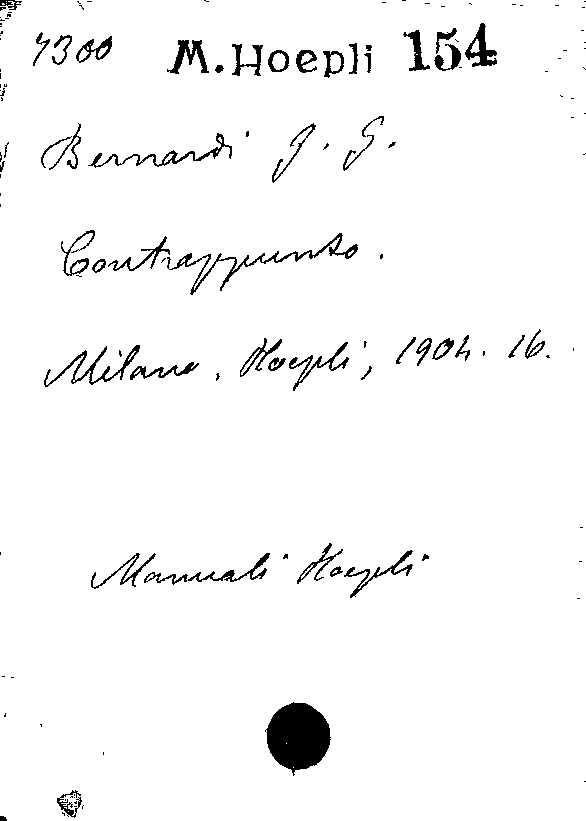 4300 M. Hoepli 154
Bernardi G. G.
Contrappunto.
Milano, Hoepli, 1904. 16.
Manuali Hoepli